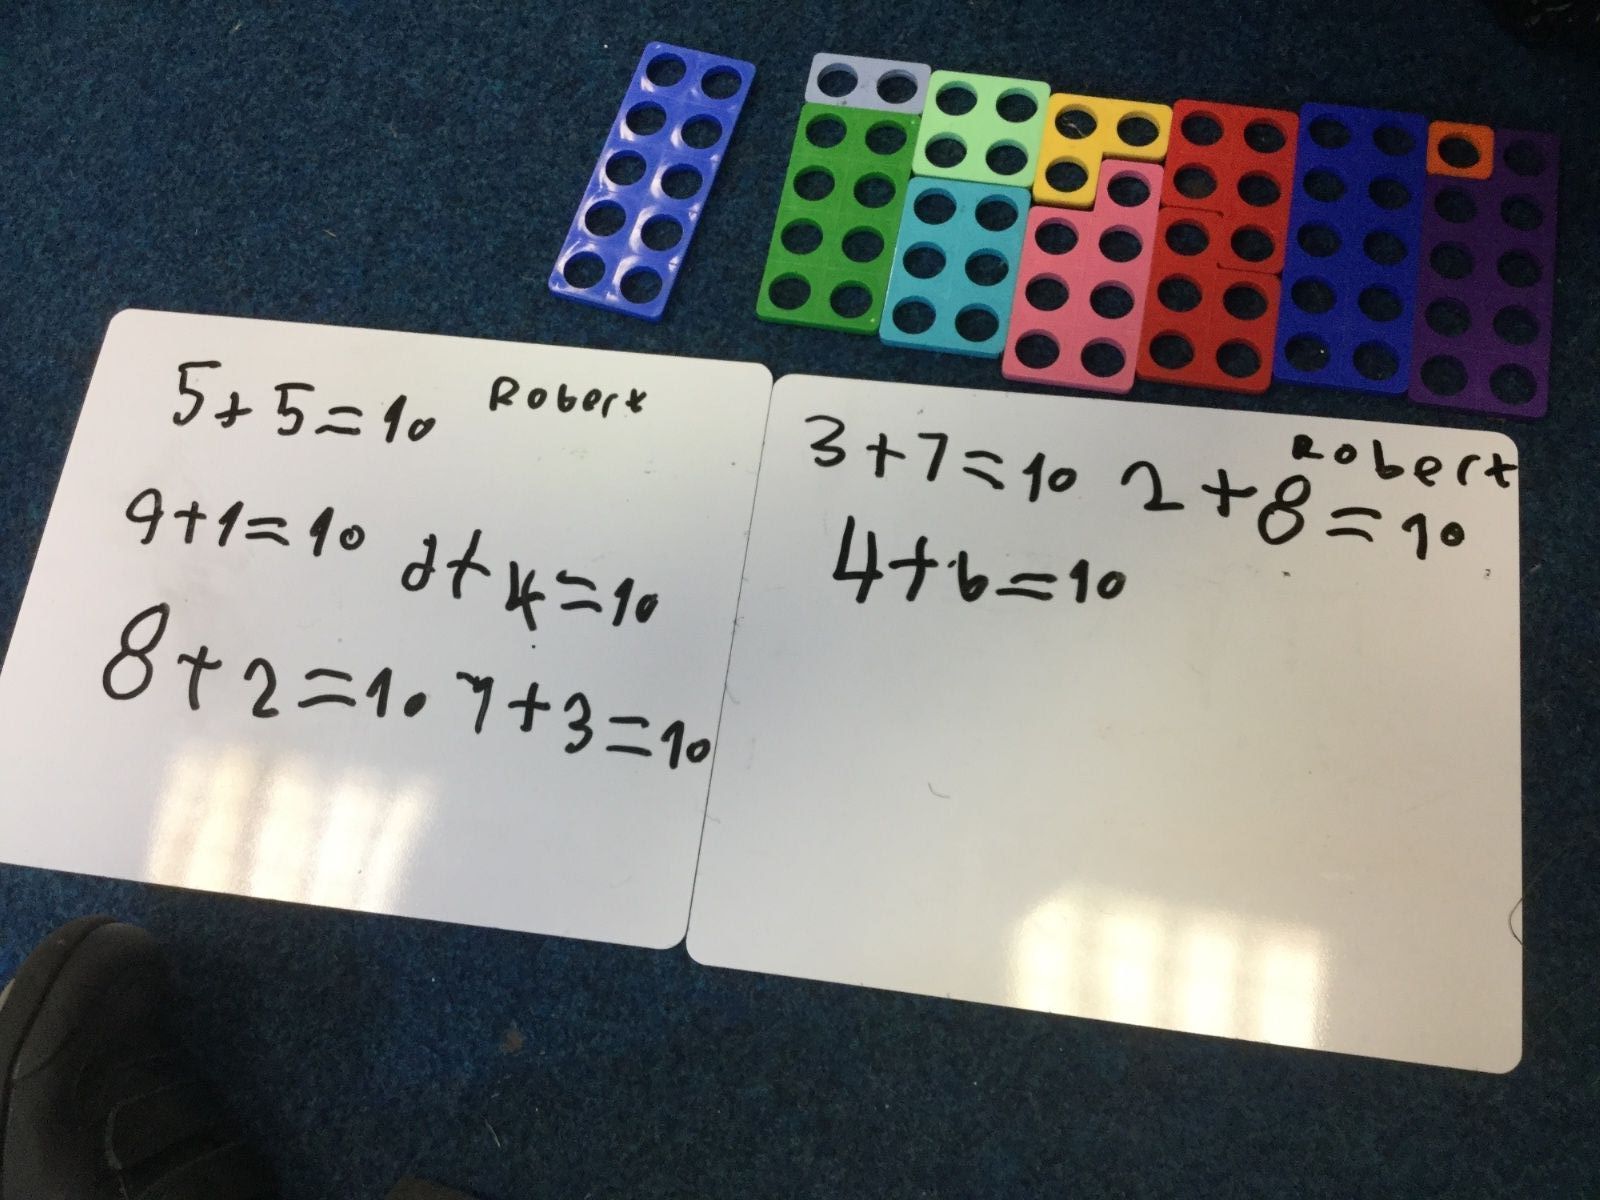 5+5=10 Robert
9+1=10
+4=10
8+2=10 7+3=10
Robert
3+7=10 2+8=10
4+6=10